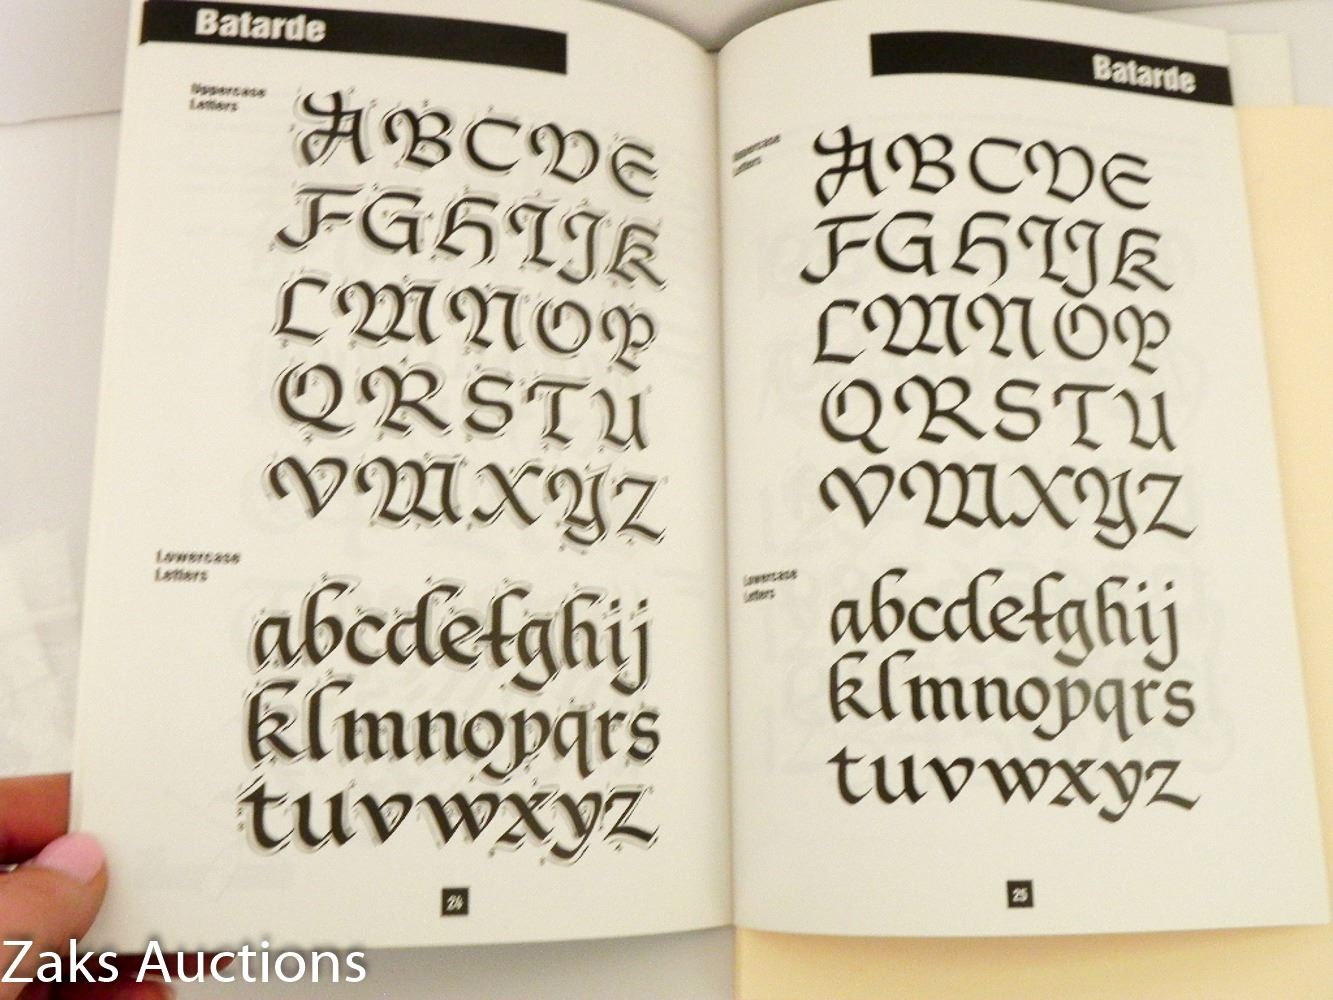 Batarde
Uppercase
Letters
ABCDE
FGHIJK
LMNOP
QRSTU
VWXYZ
Lowercase
Letters
abcdefghij
klmnopqrs
tuvwxyz
24
Batarde
Uppercase
Letters
ABCDE
FGHIJK
LMNOP
QRSTU
VWXYZ
Lowercase
Letters
abcdefghij
klmnopqrs
tuvwxyz
25
Zaks Auctions